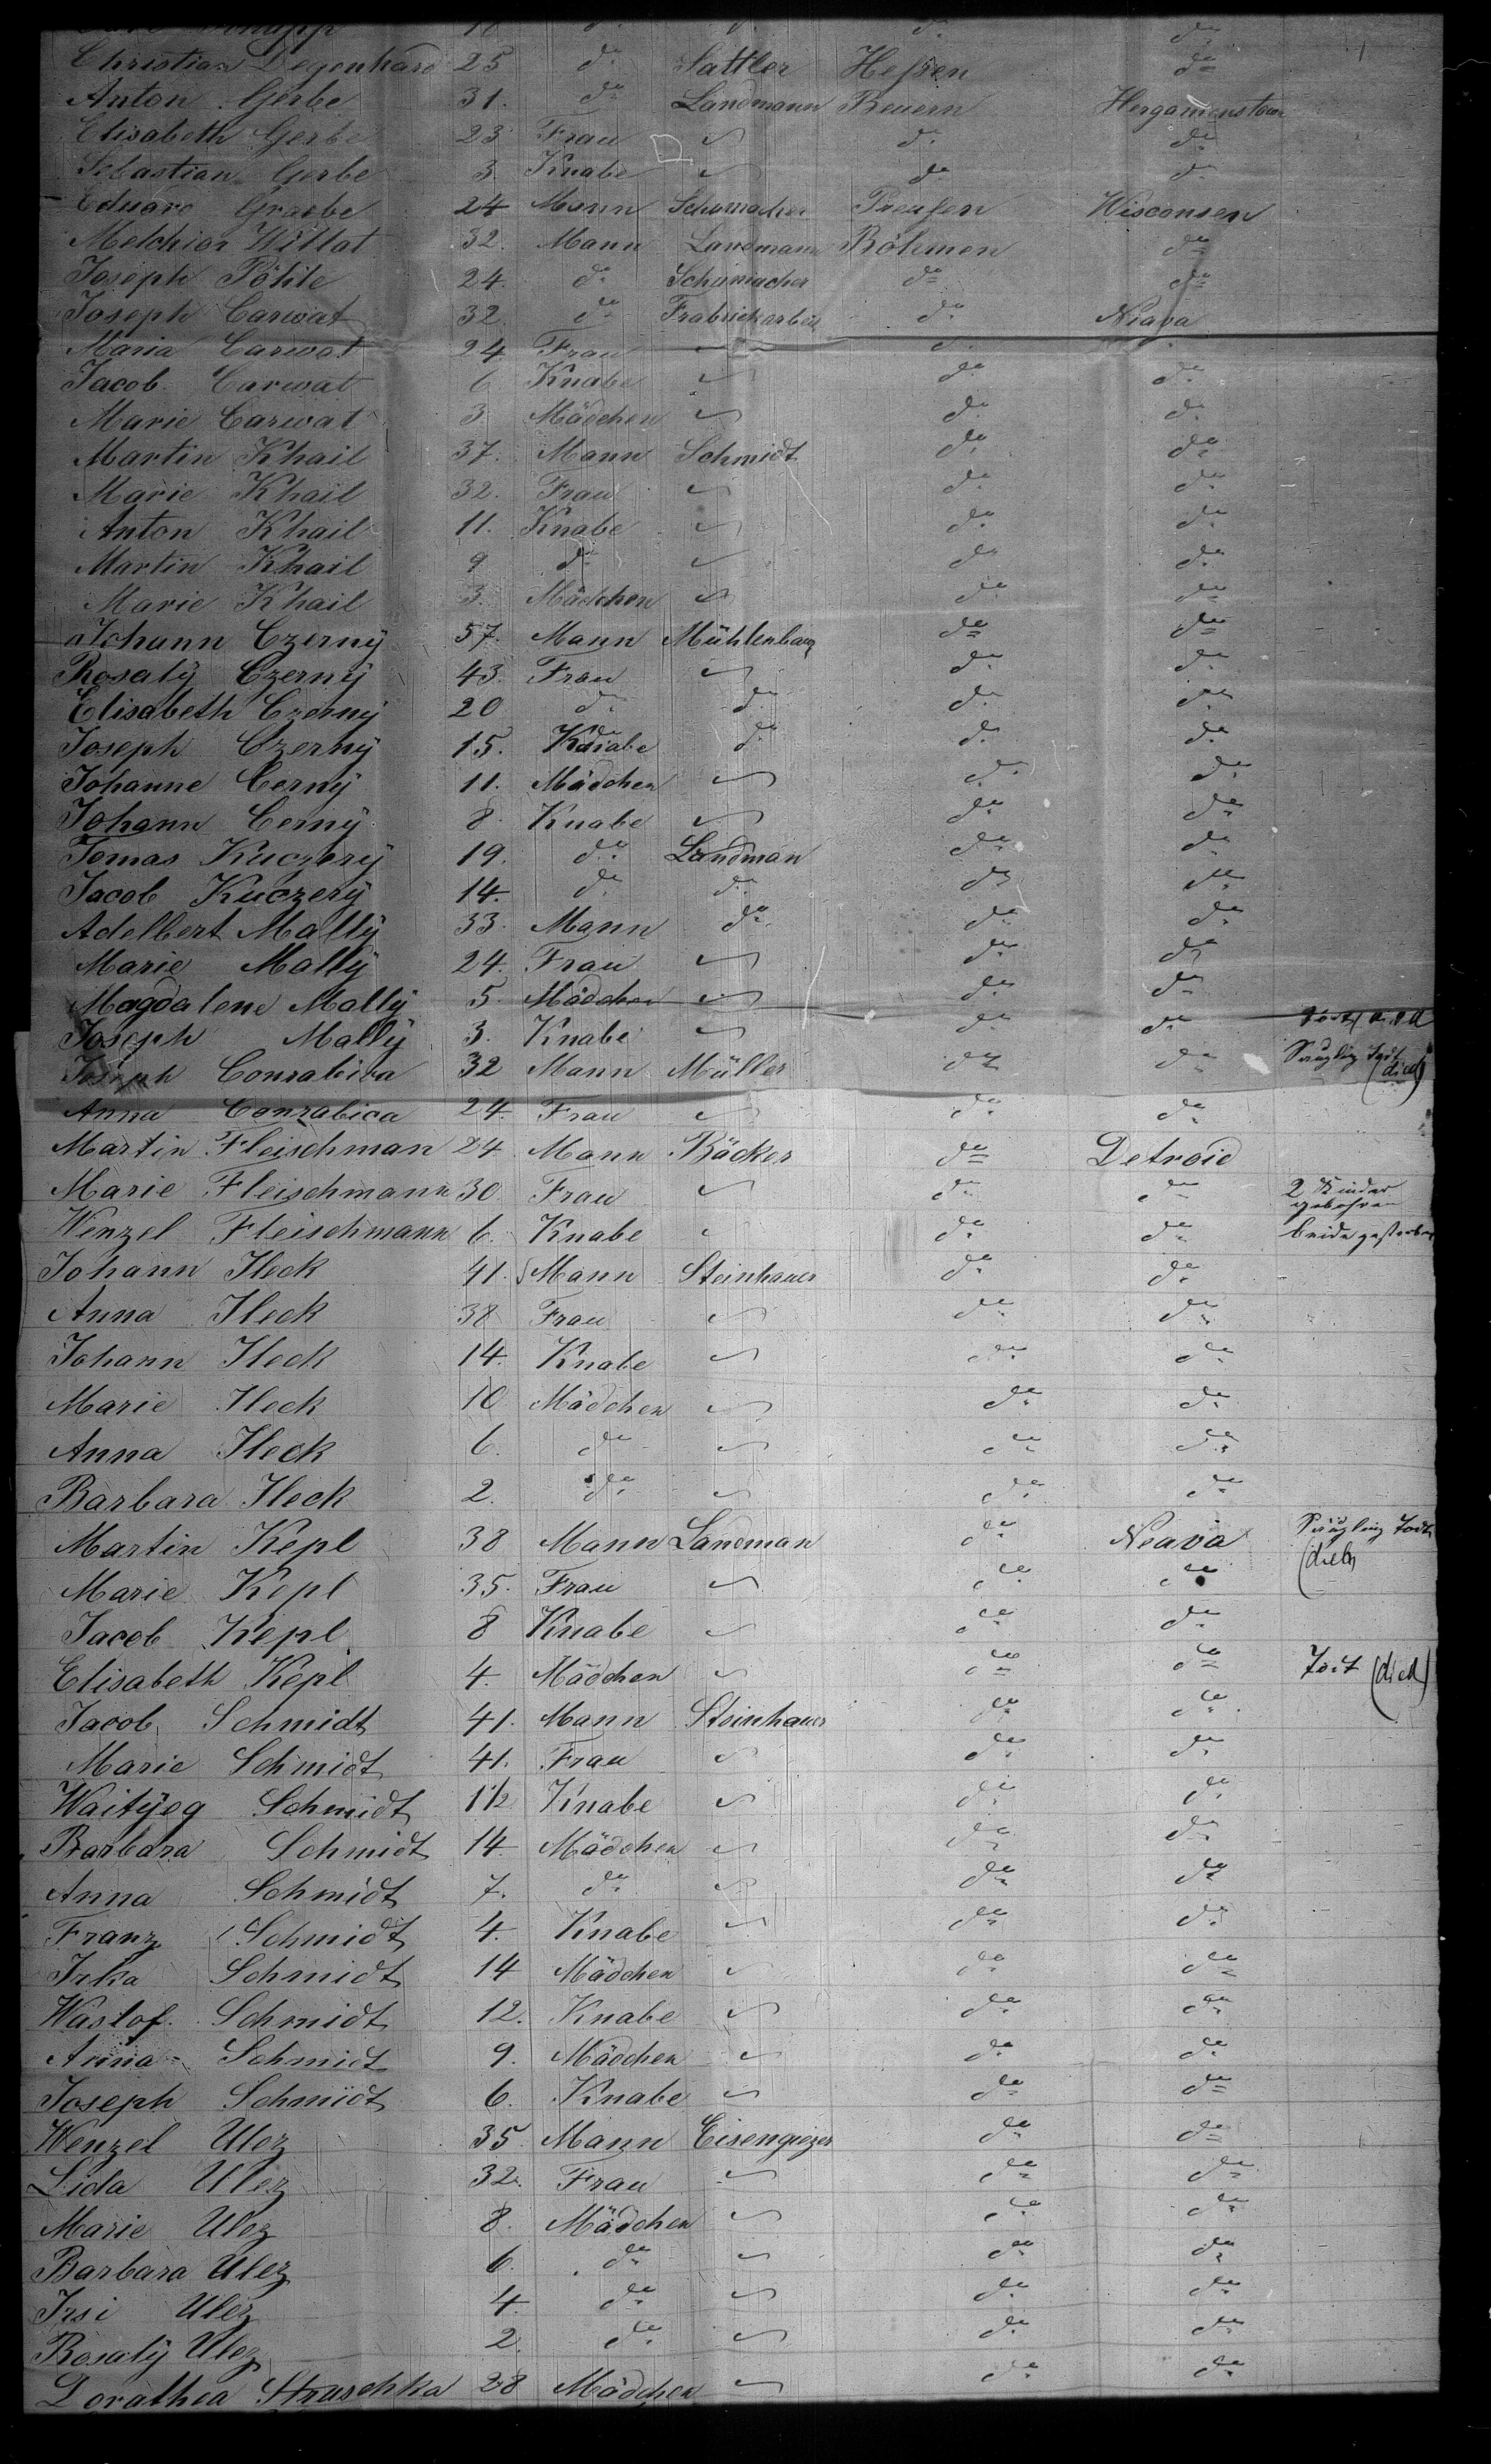 18 do do do do
Christian Degenhard 25 do Sattler Heßen do
Anton Gerbe 31. do Landmann Beuern
Elisabeth Gerbe 23 Frau do do
Sebastian Gerbe 3. Knabe do do
Eduard Graebe 24 Mann Schumacher Preußen Wisconsen
Melchior Willat 32. Mann Landmann Böhmen do
Joseph Pöhle 24. do Schumacher do do
Joseph Carwat 32. do Frabrickarbeit do Neava
Maria Carwat 24 Frau do
Jacob Carwat 6 Knabe do do
Marie Carwat 3 Mädchen do do
Martin Khail 37. Mann Schmidt do do
Marie Khail 32. Frau do do
Anton Khail 11. Knabe do do
Martin Khail 9 do do do
Marie Khail 3. Mädchen do do
Johann Czerný 57. Mann Mühlenbau do do
Rosalÿ Czernÿ 43. Frau do do
Elisabeth Czernÿ 20 do do do do
Joseph Czernÿ 15. Knabe do do do
Johanne Cernÿ 11. Mädchen do do
Johann Cernÿ 8. Knabe do do
Tomas Kuczerÿ 19. do Landman do do
Jacob Kuczerÿ 14. do do do do
Adelbert Mallÿ 33. Mann do do do
Marie Mallÿ 24. Frau do do
Magdalene Mallÿ 5. Mädchen do do
Joseph Mallÿ 3. Knabe do do
Joseph 32 Mann Müller do do Säugling Todt (died)
Anna Conzabica 24. Frau do do
Martin Fleischman 24 Mann Bäcker do Detroid
Marie Fleischmann 30 Frau do do 2 Kinder gebohren
Wenzel Fleischmann 6. Knabe do do beide gestorben
Johann Ileck 41. Mann Steinhauer do do
Anna Ileck 38 Frau do do
Johann Ileck 14. Knabe do do
Marie Ileck 10 Mädchen do do
Anna Ileck 6. do do do
Barbara Ileck 2. do do do
Martin Kepl 38 Mann Landman do Neava Säugling Todt (died)
Marie Kepl 35. Frau do do
Jacob Kepl 8 Knabe do do
Elisabeth Kepl 4. Mädchen do do Todt (died)
Jacob Schmidt 41. Mann Steinhauer do do
Marie Schmidt 41. Frau do do
Waitÿeg Schmidt 1½ Knabe do do
Barbara Schmidt 14 Mädchen do do
Anna Schmidt 7. do do do
Franz Schmidt 4. Knabe do do
Irka Schmidt 14 Mädchen do do
Waslof Schmidt 12. Knabe do do
Anna Schmidt 9. Mädchen do do
Joseph Schmidt 6. Knabe do do
Wenzel Ulez 35 Mann Eisengiezer do do
Lida Ulez 32. Frau do do
Marie Ulez 8. Mädchen do do
Barbara Ulez 6. do do do
Irsi Ulez 4. do do do
Rosalÿ Ulez 2. do do do
Dorathea Struschka 28 Mädchen do do